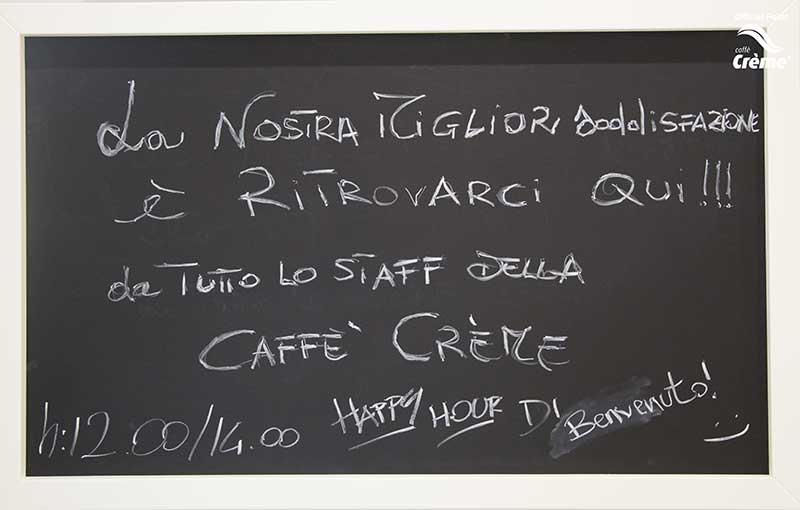 Official Point
caffè
Crème
La NOSTRA MIGLIOR SoddiSFAZIONE
è RiTROVARCI QUI!!!
da TUTTO LO STAFF DELLA
CAFFÈ CRÈME
h:12.00/14.00 HAPPY HOUR DI Benvenuto! :)